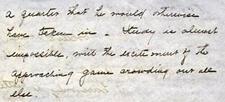 a quarter that he would otherwise
have taken in. Study is almost
impossible, with the excitement of the
approaching game crowding out all
else